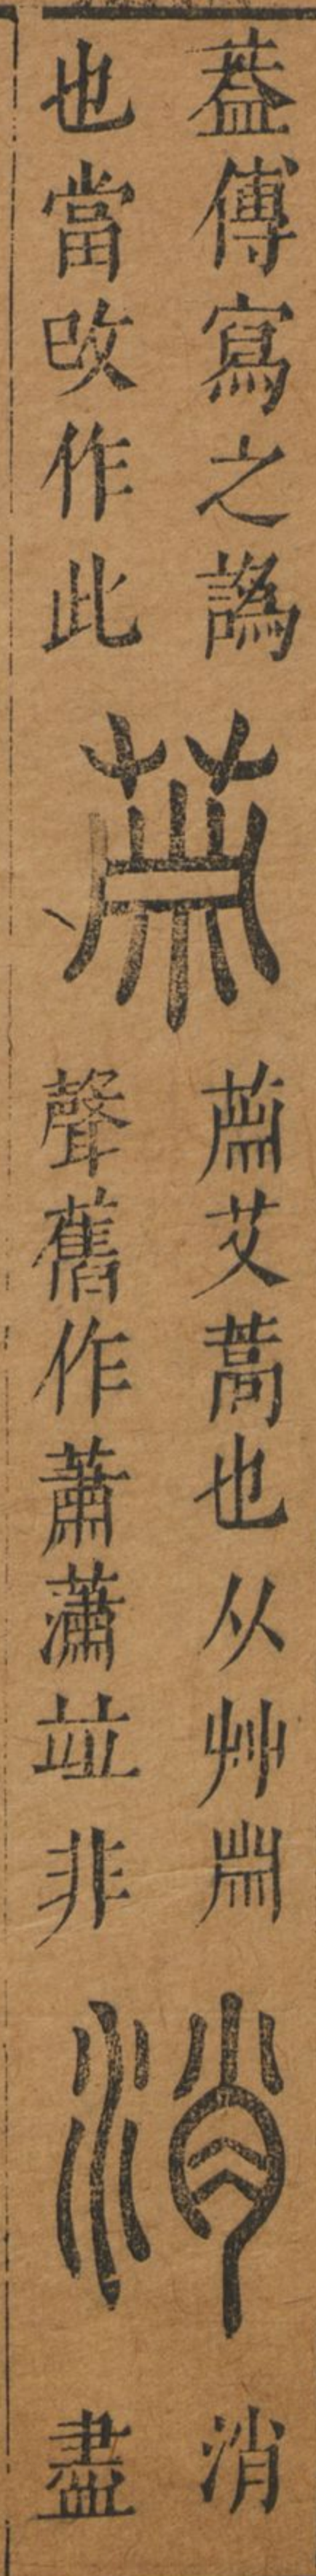 葢傳寫之譌
也當改作此
艾蒿也从艸
聲舊作蕭瀟竝非
消
消
盡